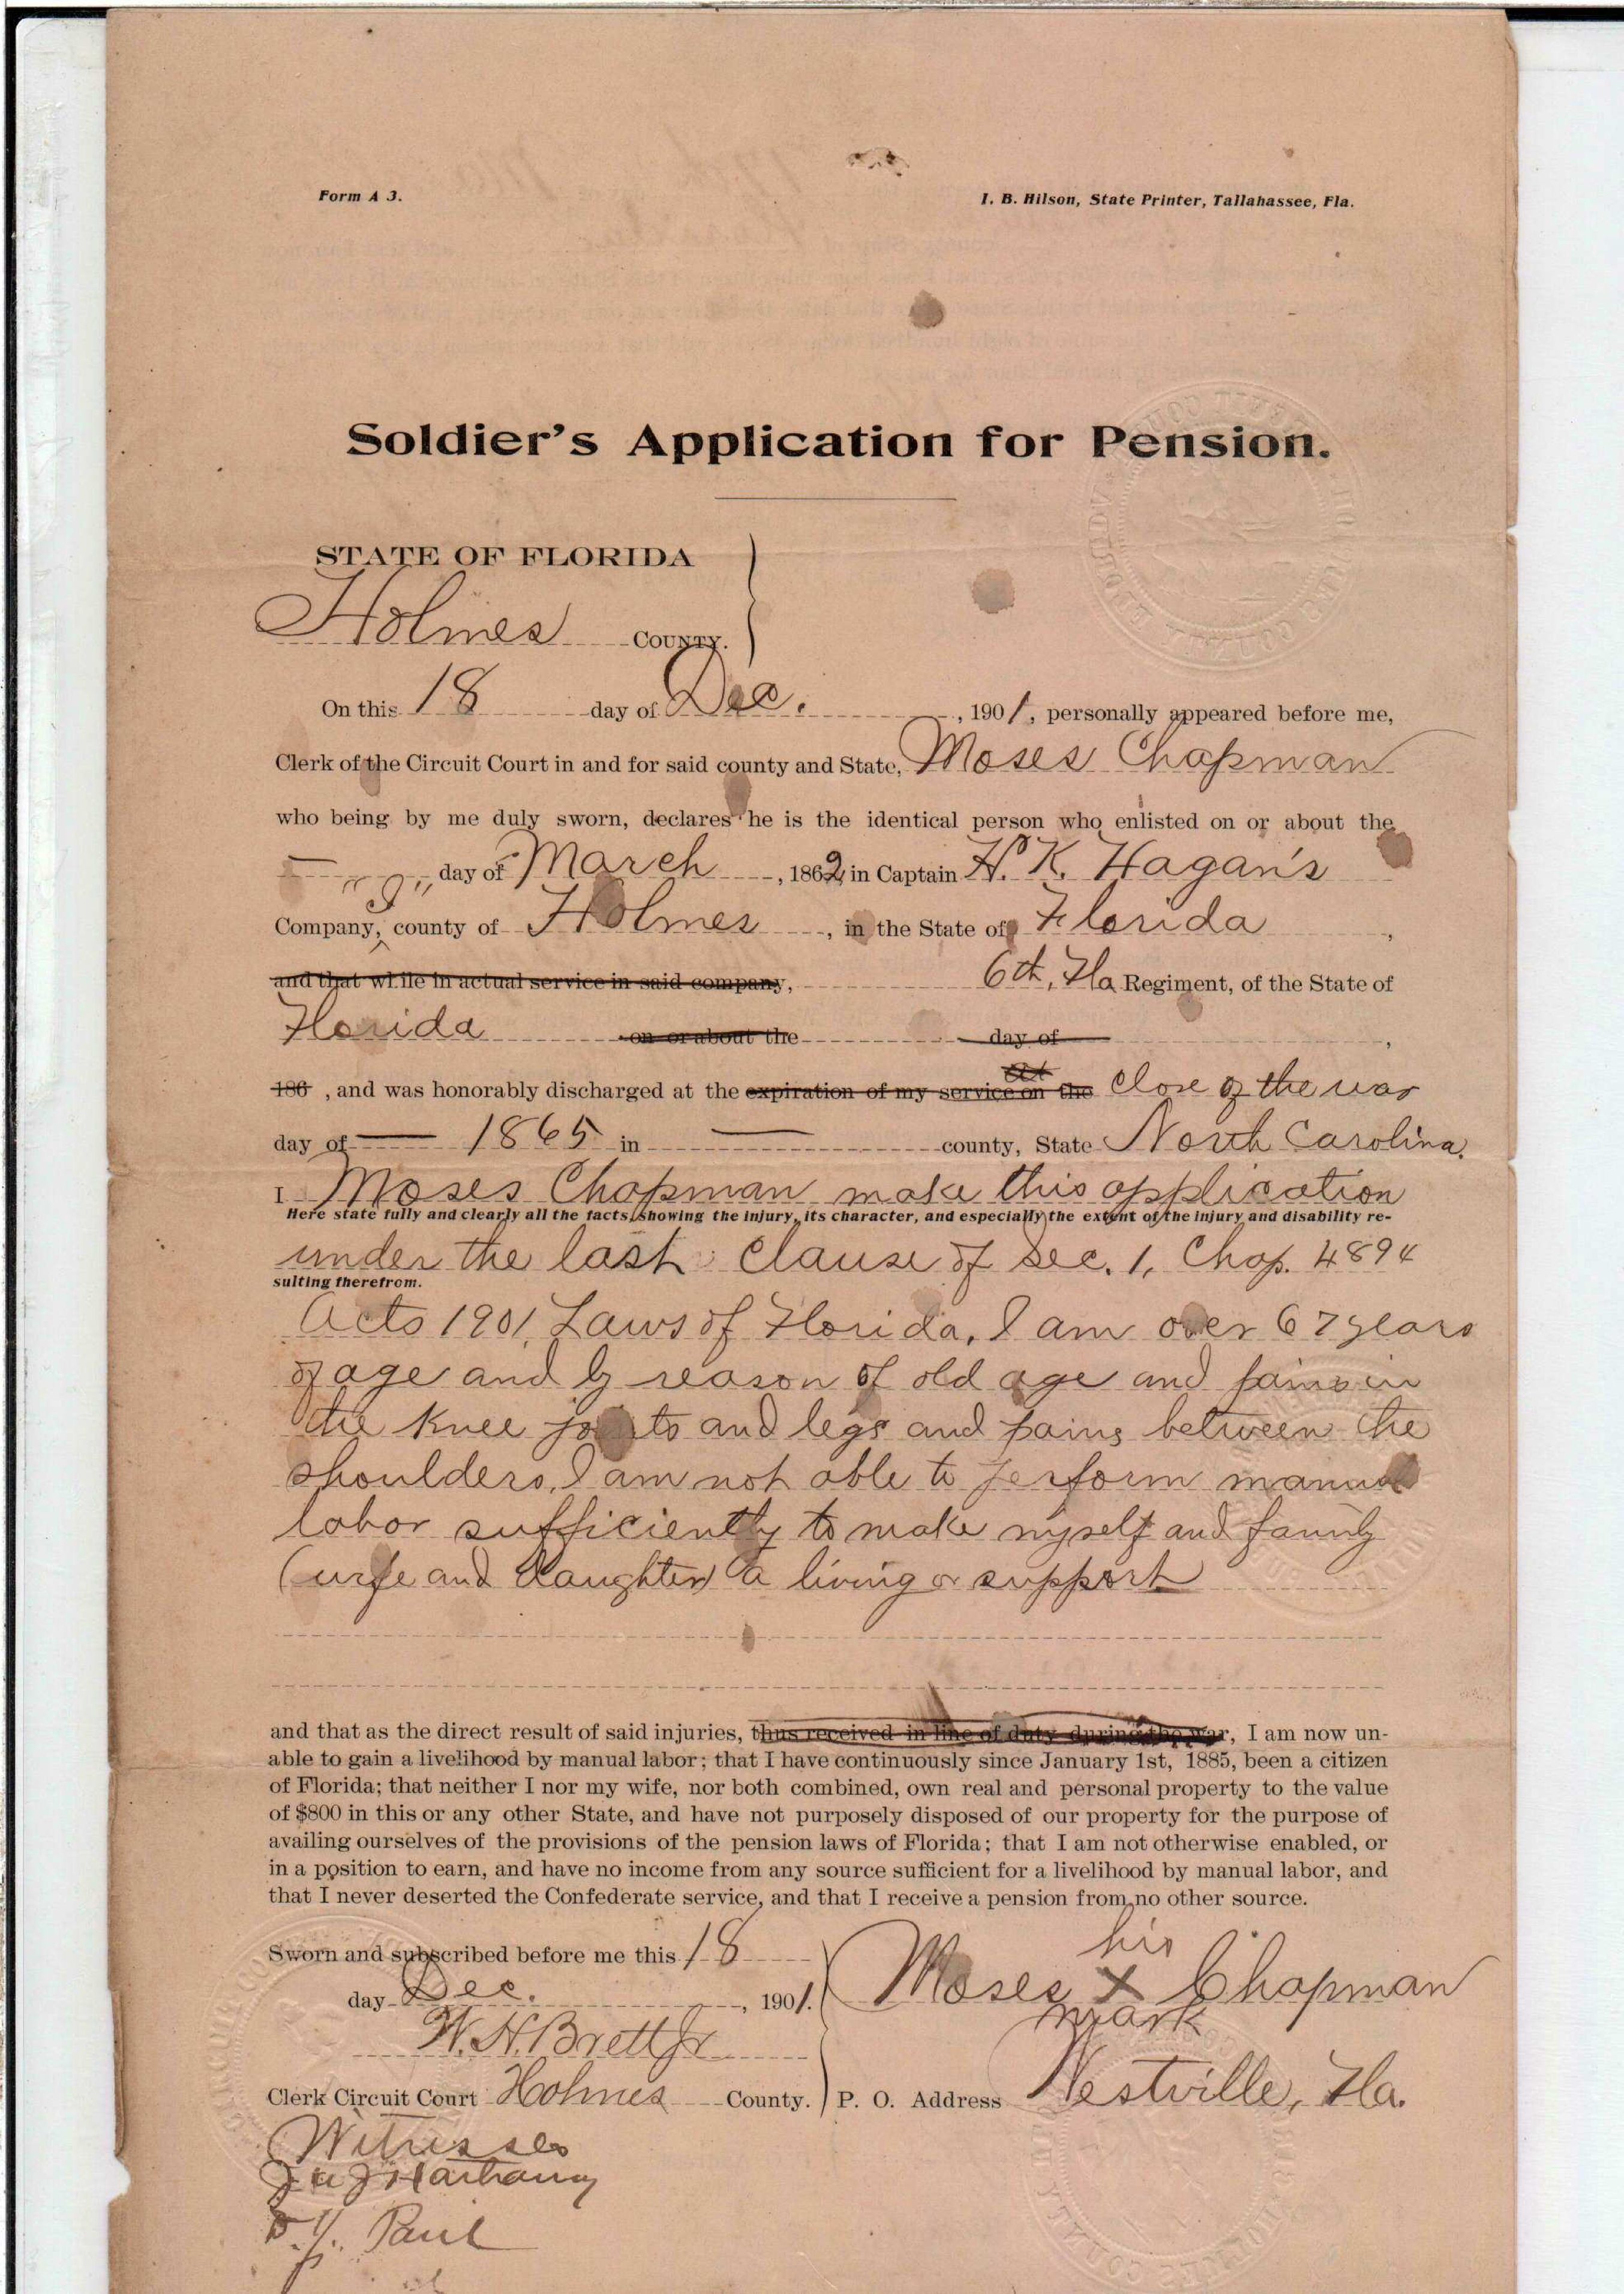 Form A 3.
I. B. Hilson, State Printer, Tallahassee, Fla.
Soldier's Application for Pension.
STATE OF FLORIDA
Holmes COUNTY.
On this 18 day of Dec. , 1901, personally appeared before me,
Clerk of the Circuit Court in and for said county and State, Moses Chapman
who being by me duly sworn, declares he is the identical person who enlisted on or about the
— day of March , 1862, in Captain H. K. Hagan's
Company, county of Holmes , in the State of Florida ,
and that while in actual service in said company, 6th, Fla Regiment, of the State of
Florida on or about the day of ,
186 , and was honorably discharged at the expiration of my service on the close of the war
day of — 1865 in — county, State North Carolina.
I Moses Chapman make this application
Here state fully and clearly all the facts, showing the injury, its character, and especially the extent of the injury and disability re-
under the last clause of Sec. 1, Chap. 4894
sulting therefrom.
Acts 1901, Laws of Florida. I am over 67 years
of age and by reason of old age and pains in
the knee joints and legs and pains between the
shoulders, I am not able to perform manual
labor sufficiently to make myself and family
(wife and daughter) a living or support
and that as the direct result of said injuries, thus received in line of duty during the war, I am now un-
able to gain a livelihood by manual labor; that I have continuously since January 1st, 1885, been a citizen
of Florida; that neither I nor my wife, nor both combined, own real and personal property to the value
of $800 in this or any other State, and have not purposely disposed of our property for the purpose of
availing ourselves of the provisions of the pension laws of Florida; that I am not otherwise enabled, or
in a position to earn, and have no income from any source sufficient for a livelihood by manual labor, and
that I never deserted the Confederate service, and that I receive a pension from no other source.
Sworn and subscribed before me this 18
day Dec. , 1901.
his
Moses X Chapman
mark
W. H. Brett Jr
Clerk Circuit Court Holmes County.
P. O. Address Westville, Fla.
Witnesses
Paul